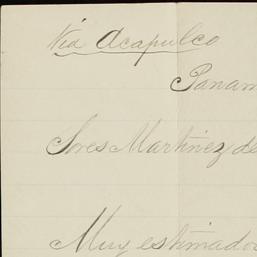 Via Acapulco
Panam
Sres Martinez de
Muy estimado